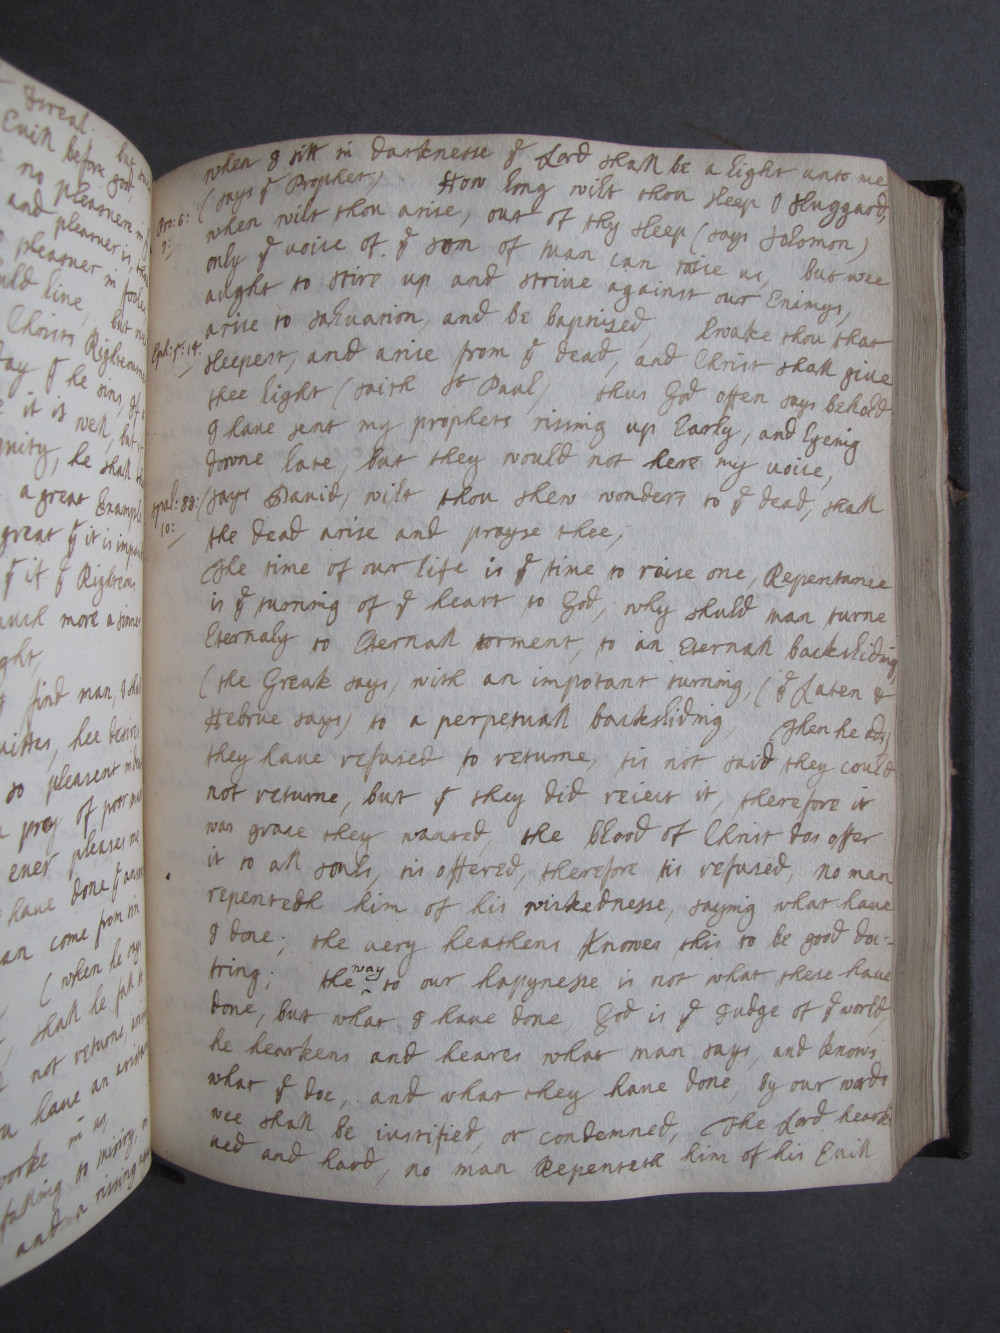 Israel. but
Evill before god,
no pleasuere in
and pleasuer is, that
pleasuer in
uld live, but
Christs Righteousne
day yt he sins,
it is well, but
nity, he shall
a great Example
great yt it is
yt if ye Righteous
much more a sinner
ght,
find man, I shall
hee
so pleasent
prey of poor
ever pleases me
have done ye
an come from
(when he says
shall he fall
not returne,
have an
worke in us,
falling to misiry,
and a rising
when I sitt in darknesse ye Lord shall be a light unto me
(says ye Prophet) How long wilt thou sleep O sluggard,
Pro: 6:
9:
when wilt thou arise, out of thy sleep (says Salomon)
only ye voice of ye son of man can raise us, but wee
aught to stire up and strive against our Enimys,
arise to saluation, and be baptised, Awake thou that
Eph: 5: 14:
sleepest, and arise from ye dead, and Christ shall give
thee light (saith St Paul) thus God often says behold
I have sent my prophets rising up Early, and lyeing
downe late, but they would not here my voice,
psal: 88:
10:
(says David) wilt thou shew wonders to ye dead, shall
the dead arise and prayse thee,
The time of our life is ye time to raise one, Repentance
is ye turning of ye heart to God, why shuld man turne
Eternaly to Eternall torment, to an Eternall backsliding
(the Greak says) with an impotant turning, (ye Laten &
Hebrue says) to a perpetuall backsliding, Then he ads,
they have refused to returne, tis not said they could
not returne, but yt they did reiect it, therefore it
was grace they wanted, the blood of Christ dos offer
it to all souls, tis offered, therefore tis refused, no man
repentedh him of his wickednesse, saying what have
I done; the very heathens Knowes this to be good doc-
tring; the way to our hapynesse is not what these have
done, but what I have done, God is ye Judge of ye world,
he hearkens and heares what man says, and knows
what yt doe, and what they have done, by our words
wee shall be iustified, or condemned, The Lord heark-
ned and hard, no man Repenteth him of his Evill